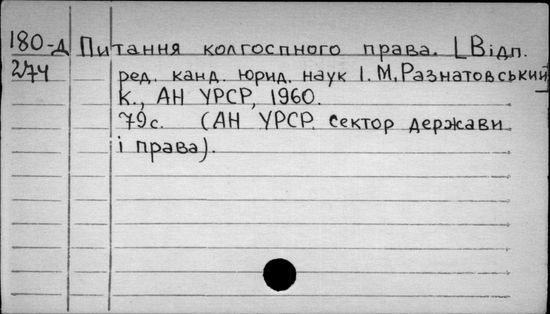 180-д Питання колгоспного права. [Відп.
274 ред. канд. юрид. наук І. М. Разнатовський
К., АН УРСР, 1960.
79с. (АН УРСР. Сектор держави
і права).